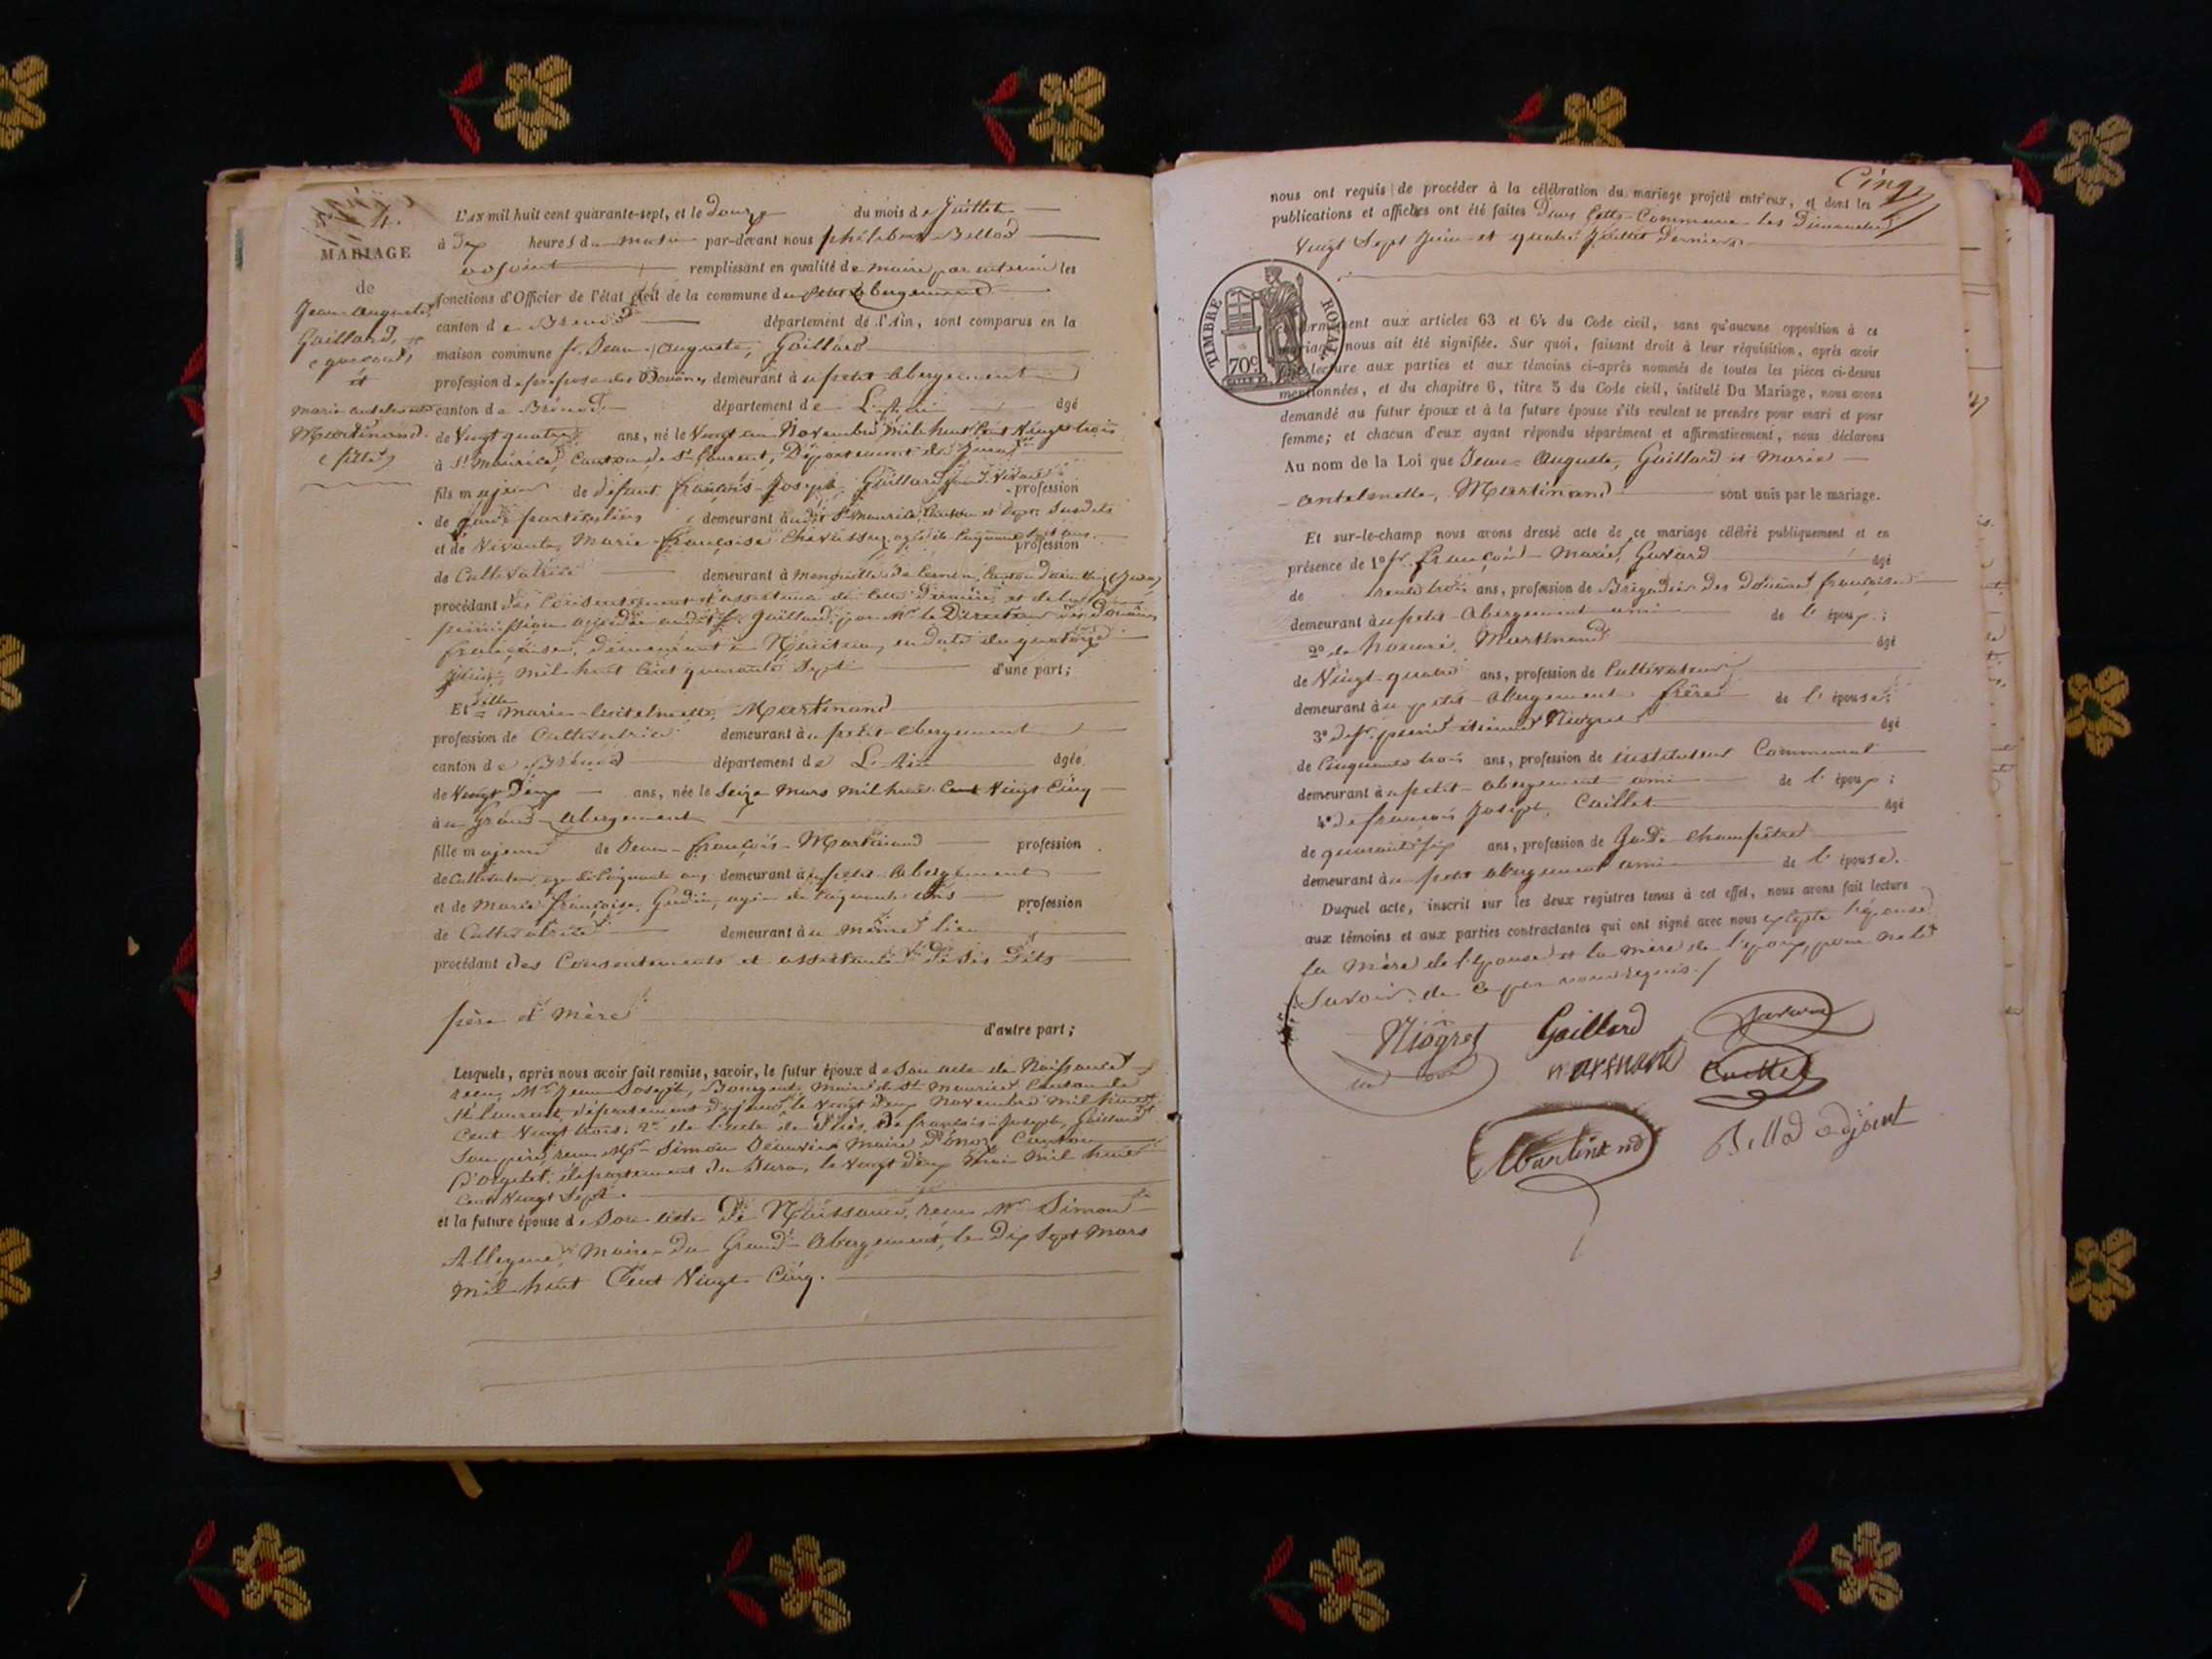 N° 4.
MARIAGE
de
Jean-Auguste,
Gaillard,
(garçon),
et
Marie antelmette
Martinand.
(fille)
L'AN mil huit cent quarante-sept, et le douze du mois de Juillet
à dix heures du matin par-devant nous philibert Bellod
adjoint remplissant en qualité de maire par interim les
fonctions d'Officier de l'état civil de la commune du petit abergement
canton de Brénod département de l'Ain, sont comparus en la
maison commune sr. Jean-Auguste, Gaillard
profession de préposé des Douanes demeurant au petit-abergement
canton de Brénod département de L'Ain âgé
de Vingt quatre ans, né le Vingt un Novembre mil huit Cent Vingt trois
à St. Maurice, Canton de St. Laurent, Département du Jura,
fils majeur de défunt françois-Joseph Gaillard, profession
de garde particulier demeurant audit St. Maurice, Canton et Dépt. Susdits
et de Vivante, Marie-françoise Chavassus, agée de Cinquante ans profession
de Cultivatrice demeurant à
procédant des Consentement et assistance de cette dernière, et de la
permission accordée audit sr. Gaillard, par Mr. le Directeur des Douanes
françaises, demeurant à Nantua, en date du quatorze
juin, mil huit Cent quarante Sept d'une part;
Et fille Marie-Antelmette, Martinand
profession de Cultivatrice demeurant au petit-abergement
canton de Brénod département de L'Ain âgée
de Vingt deux ans, née le Seize Mars mil huit Cent Vingt Cinq
au Grand-abergement
fille majeure de Jean-françois-Martinand profession
de Cultivateur, agé de Cinquante ans, demeurant au petit-abergement
et de Marie françoise, Gudin, agée de Cinquante ans profession
de Cultivatrice demeurant au même lieu
procédant des Consentements et assistance de Ses dits
père et mère d'autre part;
Lesquels, après nous avoir fait remise, savoir, le futur époux de Son acte de Naissance
reçu, Mr. Jean Joseph, Bourgeat, Maire de St. Maurice, Canton de
St. Laurent, département du jura, le Vingt deux Novembre mil huit
Cent Vingt trois. 2° de l'acte de décès, de françois-Joseph, Gaillard
Son père, reçu Mr. Simon Maire Canton
D'orgelet, département du Jura, le Vingt deux Mai mil huit
Cent Vingt Sept.
et la future épouse de Son acte de Naissance, reçu Mr. Simon
Alleyme, Maire du Grand-abergement, le Dix Sept Mars
mil huit Cent Vingt Cinq.
Cinq
nous ont requis de procéder à la célébration du mariage projeté entr'eux, et dont les
publications et affiches ont été faites Dans Cette-Commune les Dimanches
Vingt Sept Juin et quatre Juillet Derniers
TIMBRE ROYAL
70c
conformément aux articles 63 et 64 du Code civil, sans qu'aucune opposition à ce
mariage nous ait été signifiée. Sur quoi, faisant droit à leur réquisition, après avoir
fait lecture aux parties et aux témoins ci-après nommés de toutes les pièces ci-dessus
mentionnées, et du chapitre 6, titre 5 du Code civil, intitulé Du Mariage, nous avons
demandé au futur époux et à la future épouse s'ils veulent se prendre pour mari et pour
femme; et chacun d'eux ayant répondu séparément et affirmativement, nous déclarons
Au nom de la Loi que Jean-Auguste, Gaillard et Marie
-antelmette, Martinand sont unis par le mariage.
Et sur-le-champ nous avons dressé acte de ce mariage célébré publiquement et en
présence de 1° sr. françois-Marie, Gavard âgé
de trente trois ans, profession de Brigadier des Douanes françaises
demeurant au petit-abergement ami de l'époux;
2° de honoré, Martinand âgé
de Vingt-quatre ans, profession de Cultivateur
demeurant au petit-abergement frère de l'épouse;
3° de sr. pierre étienne Niogret âgé
de Cinquante trois ans, profession de instituteur Communal
demeurant au petit-abergement ami de l'époux;
4° de françois Joseph, Caillet âgé
de quarante six ans, profession de Garde Champêtre
demeurant au petit abergement ami de l'épouse.
Duquel acte, inscrit sur les deux registres tenus à cet effet, nous avons fait lecture
aux témoins et aux parties contractantes qui ont signé avec nous excepté l'épouse
la Mère de l'épouse et la mère de l'époux, pour ne le
Savoir de ce par nous requis.
Niogret Gaillard Gavard
Martinand Caillet
Martinand Bellod adjoint